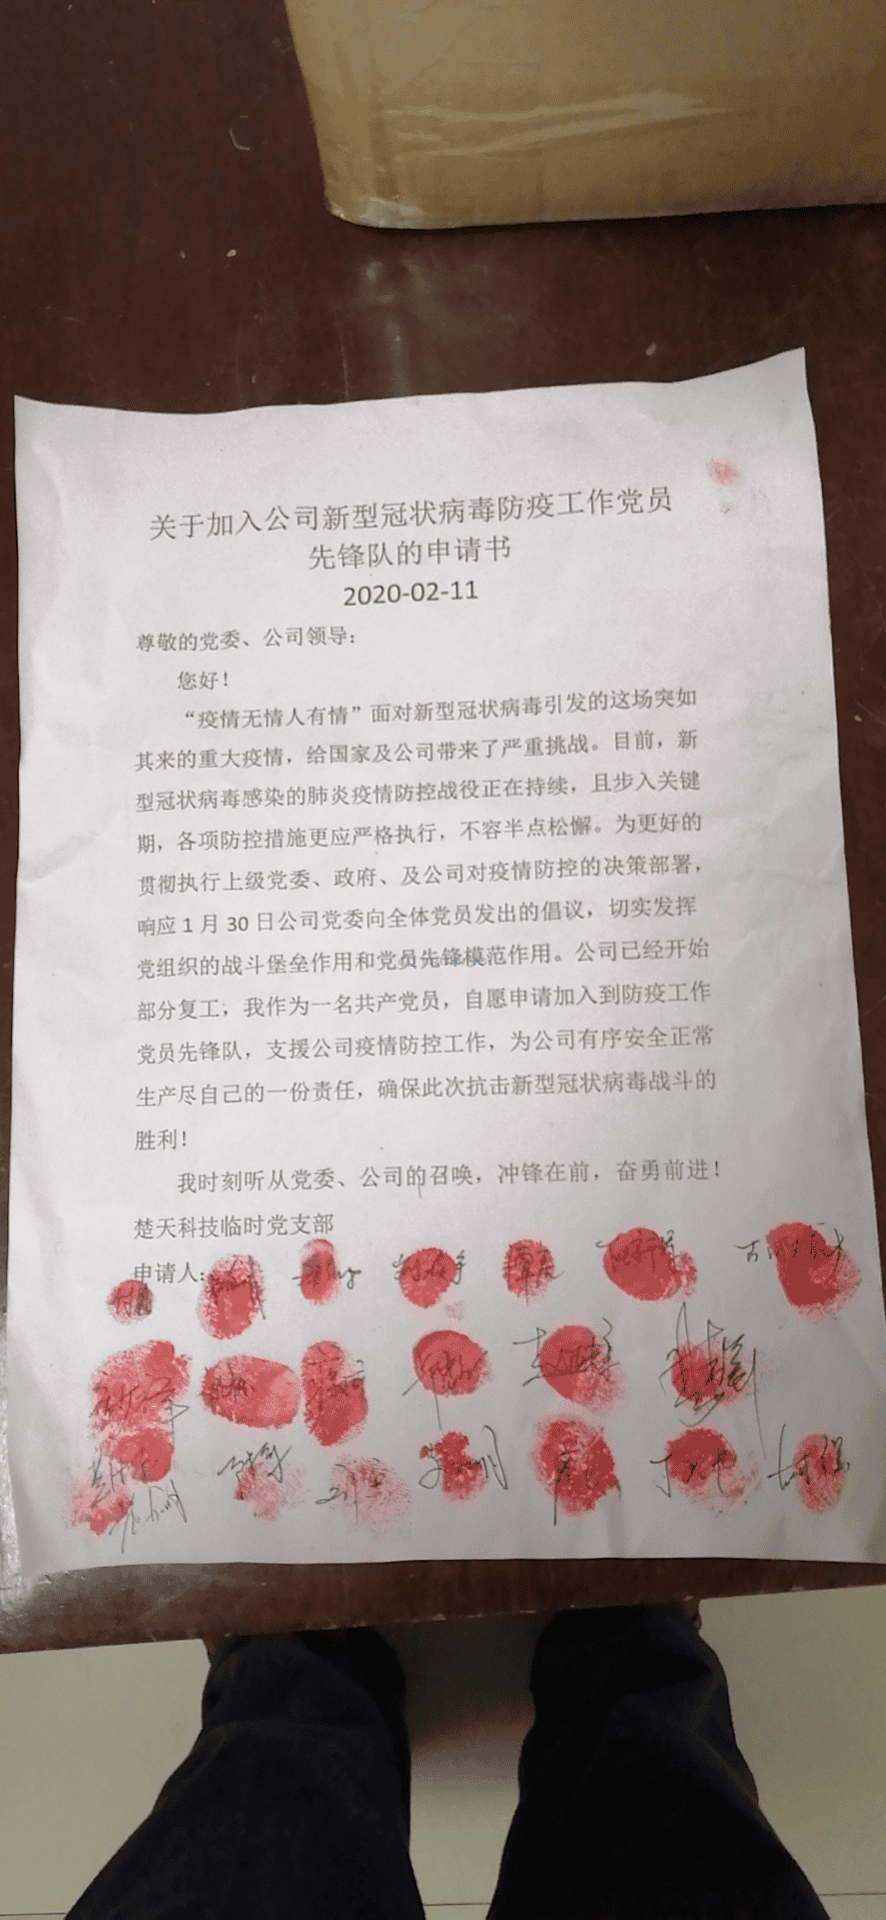 关于加入公司新型冠状病毒防疫工作党员
先锋队的申请书
2020-02-11
尊敬的党委、公司领导：
您好！
“疫情无情人有情”面对新型冠状病毒引发的这场突如
其来的重大疫情，给国家及公司带来了严重挑战。目前，新
型冠状病毒感染的肺炎疫情防控战役正在持续，且步入关键
期，各项防控措施更应严格执行，不容半点松懈。为更好的
贯彻执行上级党委、政府、及公司对疫情防控的决策部署，
响应 1 月 30 日公司党委向全体党员发出的倡议，切实发挥
党组织的战斗堡垒作用和党员先锋模范作用。公司已经开始
部分复工，我作为一名共产党员，自愿申请加入到防疫工作
党员先锋队，支援公司疫情防控工作，为公司有序安全正常
生产尽自己的一份责任，确保此次抗击新型冠状病毒战斗的
胜利！
我时刻听从党委、公司的召唤，冲锋在前，奋勇前进！
楚天科技临时党支部
申请人：